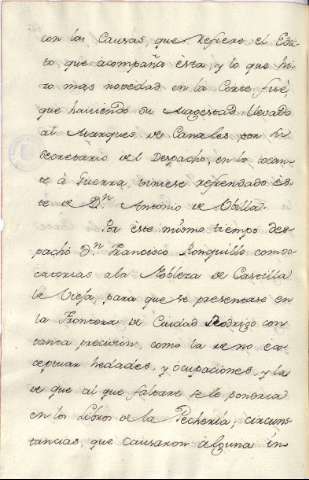 con las Causas, que refiere el Edic-
to que acompaña ésta, y lo que hi-
zo mas novedad en la Corte fué,
que haviendo su Magestad llevado
al Marques de Canales por su
Secretario del Despacho, en lo tocan-
te à Guerra, viniese refrendado és-
te de Dn. Antonio de Ubilla.
Por éste mismo tiempo des-
pachó Dn. Francisco Ronquillo combo-
catorias a la Nobleza de Castilla
la Vieja, para que se presentase en
la Frontera de Ciudad Rodrigo con
tanta precision, como la de no ex-
ceptuar hedades, y ocupaciones, y la
de que al que faltare se le pondria
en los Libros de la Pechería, circuns-
tancias, que causaron alguna in-